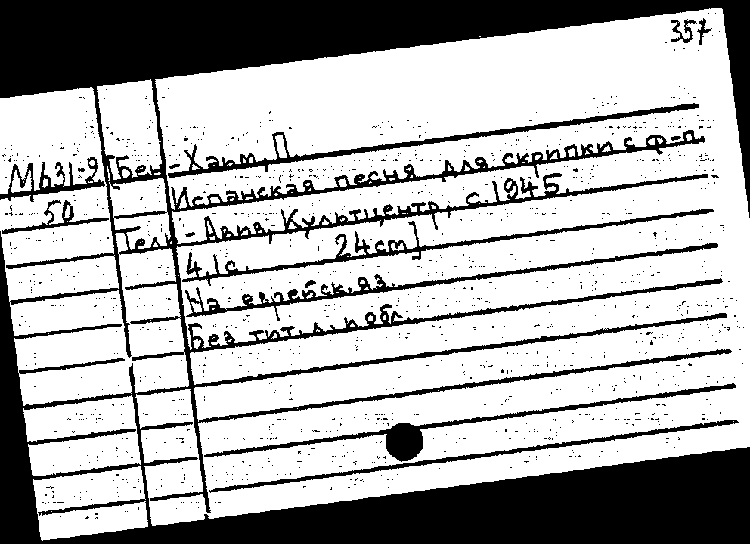 357
М631-2 [Бен-Хаим, П.
50 Испанская песня для скрипки с ф-п.
Тель-Авив, Культцентр, с.1945.
4,1с. 24cm]
На еврейск.яз.
Без тит.л. и обл.